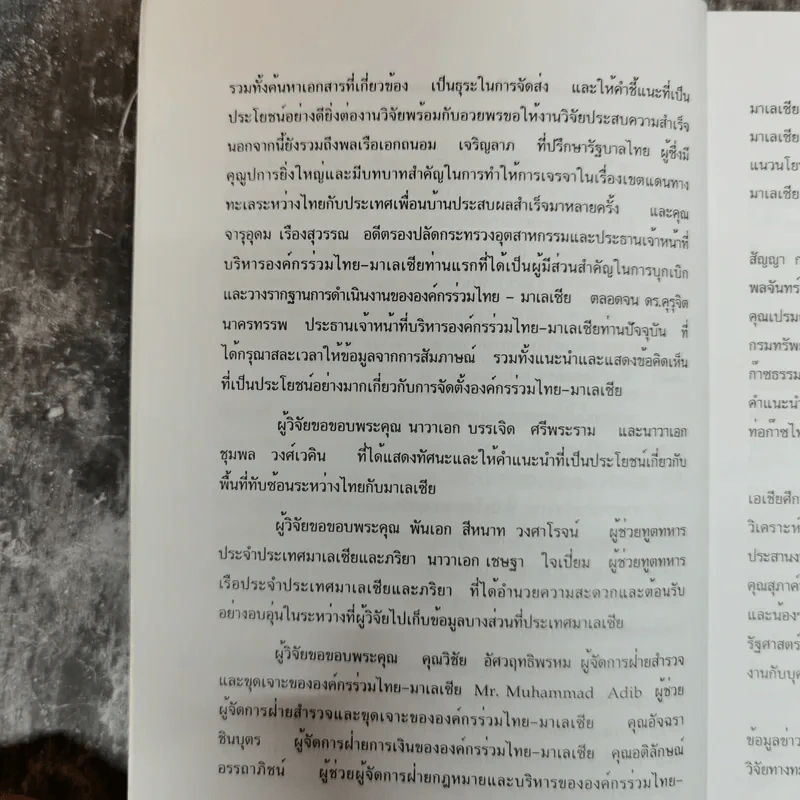 รวมทั้งค้นหาเอกสารที่เกี่ยวข้อง เป็นธุระในการจัดส่ง และให้คำชี้แนะที่เป็น
ประโยชน์อย่างดียิ่งต่องานวิจัยพร้อมกับอวยพรขอให้งานวิจัยประสบความสำเร็จ
นอกจากนี้ยังรวมถึงพลเรือเอกถนอม เจริญลาภ ที่ปรึกษารัฐบาลไทย ผู้ซึ่งมี
คุณูปการยิ่งใหญ่และมีบทบาทสำคัญในการทำให้การเจรจาในเรื่องเขตแดนทาง
ทะเลระหว่างไทยกับประเทศเพื่อนบ้านประสบผลสำเร็จมาหลายครั้ง และคุณ
จารุอุดม เรืองสุวรรณ อดีตรองปลัดกระทรวงอุตสาหกรรมและประธานเจ้าหน้าที่
บริหารองค์กรร่วมไทย-มาเลเซียท่านแรกที่ได้เป็นผู้มีส่วนสำคัญในการบุกเบิก
และวางรากฐานการดำเนินงานขององค์กรร่วมไทย - มาเลเซีย ตลอดจน ดร.คุรุจิต
นาครทรรพ ประธานเจ้าหน้าที่บริหารองค์กรร่วมไทย-มาเลเซียท่านปัจจุบัน ที่
ได้กรุณาสละเวลาให้ข้อมูลจากการสัมภาษณ์ รวมทั้งแนะนำและแสดงข้อคิดเห็น
ที่เป็นประโยชน์อย่างมากเกี่ยวกับการจัดตั้งองค์กรร่วมไทย-มาเลเซีย
ผู้วิจัยขอขอบพระคุณ นาวาเอก บรรเจิด ศรีพระราม และนาวาเอก
ชุมพล วงศ์เวคิน ที่ได้แสดงทัศนะและให้คำแนะนำที่เป็นประโยชน์เกี่ยวกับ
พื้นที่ทับซ้อนระหว่างไทยกับมาเลเซีย
ผู้วิจัยขอขอบพระคุณ พันเอก สีหนาท วงศาโรจน์ ผู้ช่วยทูตทหาร
ประจำประเทศมาเลเซียและภริยา นาวาเอก เชษฐา ใจเปี่ยม ผู้ช่วยทูตทหาร
เรือประจำประเทศมาเลเซียและภริยา ที่ได้อำนวยความสะดวกและต้อนรับ
อย่างอบอุ่นในระหว่างที่ผู้วิจัยไปเก็บข้อมูลบางส่วนที่ประเทศมาเลเซีย
ผู้วิจัยขอขอบพระคุณ คุณวิชัย อัศวฤทธิพรหม ผู้จัดการฝ่ายสำรวจ
และขุดเจาะขององค์กรร่วมไทย-มาเลเซีย Mr. Muhammad Adib ผู้ช่วย
ผู้จัดการฝ่ายสำรวจและขุดเจาะขององค์กรร่วมไทย-มาเลเซีย คุณอัจฉรา
ชินบุตร ผู้จัดการฝ่ายการเงินขององค์กรร่วมไทย-มาเลเซีย คุณอติลักษณ์
อรรถาภิชน์ ผู้ช่วยผู้จัดการฝ่ายกฎหมายและบริหารขององค์กรร่วมไทย-
มาเลเซีย
มาเลเซีย
แนวนโย
มาเลเซีย
สัญญา ก
พลจันทร์
คุณเปรม
กรมทรัพ
ก๊าซธรรม
คำแนะนำ
ท่อก๊าซไ
เอเชียศึก
วิเคราะห์
ประสานง
คุณสุภาค์
และน้องร
รัฐศาสตร์
งานกับบุค
ข้อมูลข่าว
วิจัยทางทะ